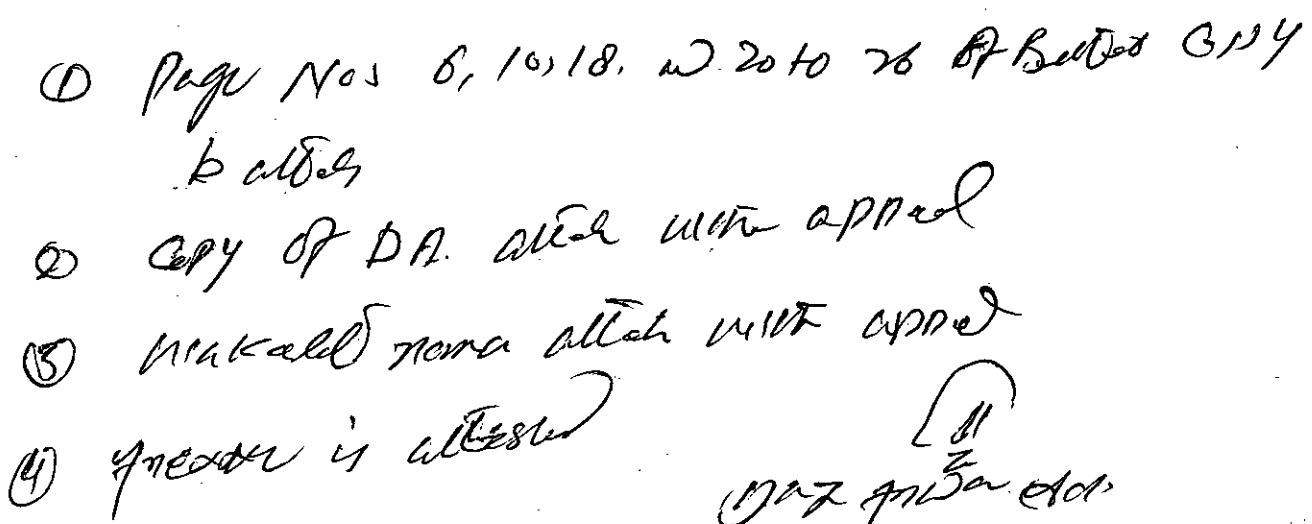 ① Page Nos 6, 10, 18, 20 to 26 of Better Copy
b attach
② Copy of DA. attach with appeal
③ wakalat nama attach with appeal
④ Annexure is attested
Adv.